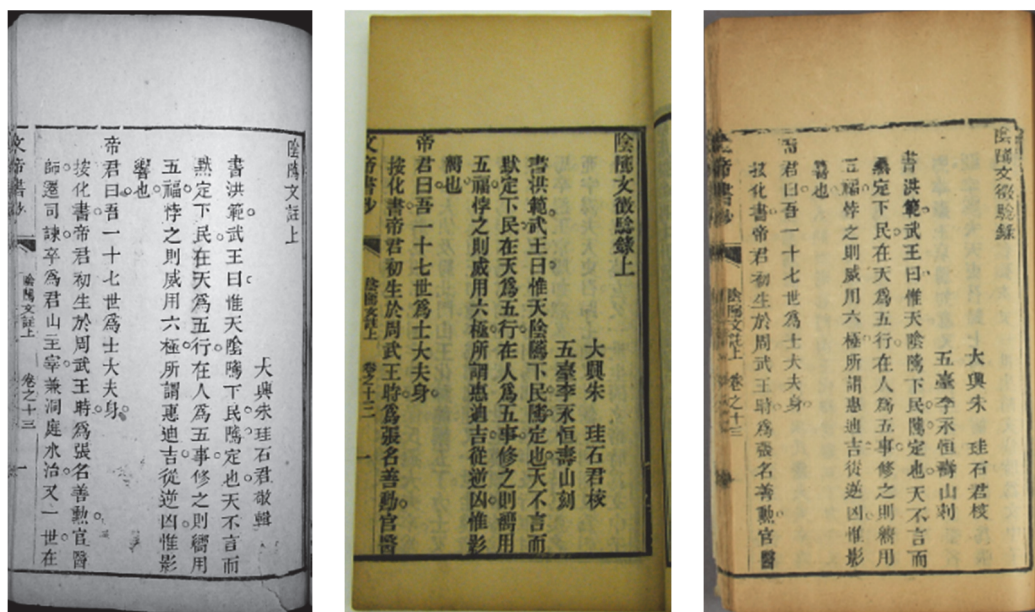 陰隲文註上
大興朱珪石君敬輯
書洪範武王曰惟天陰隲下民隲定也天不言而
默定下民在天爲五行在人爲五事修之則嚮用
五福悖之則威用六極所謂惠迪吉從逆凶惟影
響也
帝君曰吾一十七世爲士大夫身
按化書帝君初生於周武王時爲張名善勳官醫
師遷司諫卒爲君山主宰兼洞庭水治又一世在
文帝書鈔
陰隲文註上
卷之十三
一
陰隲文徵驗錄上
大興朱珪石君校
五臺李永恒壽山刻
書洪範武王曰惟天陰隲下民隲定也天不言而
默定下民在天爲五行在人爲五事修之則嚮用
五福悖之則威用六極所謂惠迪吉從逆凶惟影
嚮也
帝君曰吾一十七世爲士大夫身
按化書帝君初生於周武王時爲張名善勳官醫
文帝書鈔
陰隲文註上
卷之十三
一
陰隲文徵驗錄
大興朱珪石君校
五臺李永恒壽山刻
書洪範武王曰惟天陰隲下民隲定也天不言而
默定下民在天爲五行在人爲五事修之則嚮用
五福悖之則威用六極所謂惠迪吉從逆凶惟影
響也
帝君曰吾一十七世爲士大夫身
按化書帝君初生於周武王時爲張名善勳官醫
文帝書鈔
陰隲文註上
卷之十三